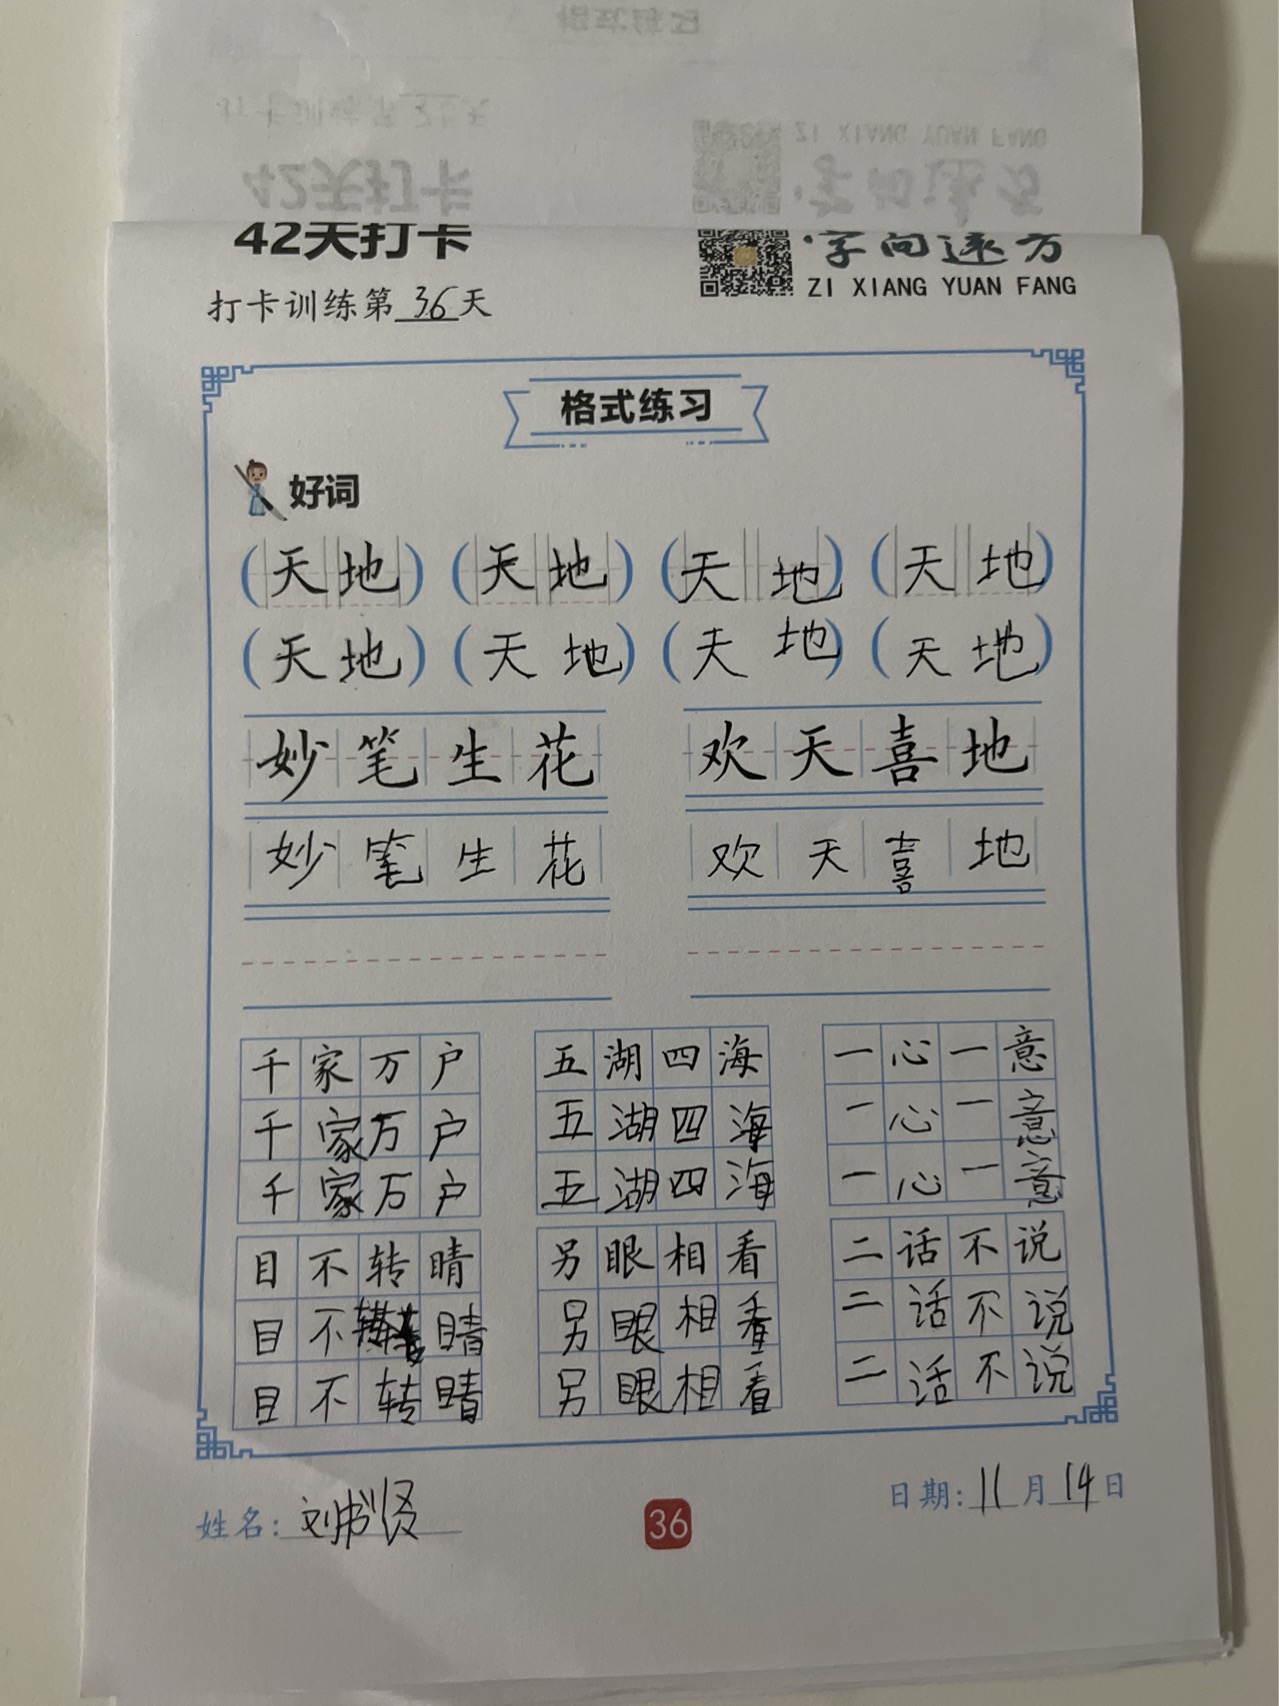 42天打卡
字向远方
ZI XIANG YUAN FANG
打卡训练第36天
格式练习
好词
(天地) (天地) (天地) (天地)
(天地) (天地) (天地) (天地)
妙笔生花 欢天喜地
妙笔生花 欢天喜地
千家万户 五湖四海 一心一意
千家万户 五湖四海 一心一意
千家万户 五湖四海 一心一意
目不转睛 另眼相看 二话不说
目不转睛 另眼相看 二话不说
目不转睛 另眼相看 二话不说
姓名:刘书贤
36
日期:11月14日